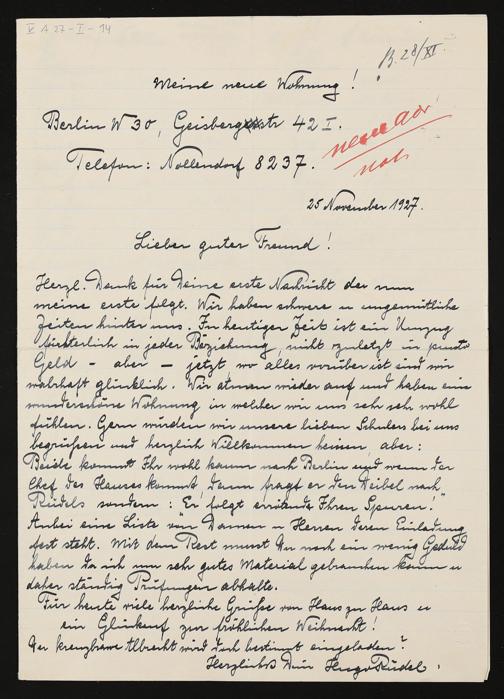 V A 27-I-14
B. 28/XI.
Meine neue Wohnung!
Berlin W 30, Geisbergstr 42 I.
Telefon: Nollendorf 8237.
neue Adr
not.
25 November 1927.
Lieber guter Freund!
Herzl. Dank für Deine erste Nachricht der nun
meine erste folgt. Wir haben schwere u ungemütliche
Zeiten hinter uns. In heutiger Zeit ist ein Umzug
fürchterlich in jeder Beziehung, nicht zuletzt in puncto
Geld - aber - jetzt, wo alles vorüber ist sind wir
wahrhaft glücklich. Wir atmen wieder auf und haben eine
wunderschöne Wohnung in welcher wir uns sehr sehr wohl
fühlen. Gern würden wir unsere lieben Schulers bei uns
begrüssen und herzlich Willkommen heissen, aber:
Beide kommt Ihr wohl kaum nach Berlin und wenn der
Chef des Hauses kommt, dann fragt er den Weibel nach
Rüdels sondern: "Er folgt errötend Ihren Spuren!"
Anbei eine Liste von Damen u Herren deren Einladung
fest steht. Mit dem Rest musst Du noch ein wenig Geduld
haben da ich nur sehr gutes Material gebrauchen kann u
daher ständig Prüfungen abhalte.
Für heute viele herzliche Grüsse von Haus zu Haus u
ein Glückauf zur fröhlichen Weihnacht!
Der kreuzbrave Albrecht wird doch bestimmt eingeladen?
Herzlichst Dein Hugo Rüdel.